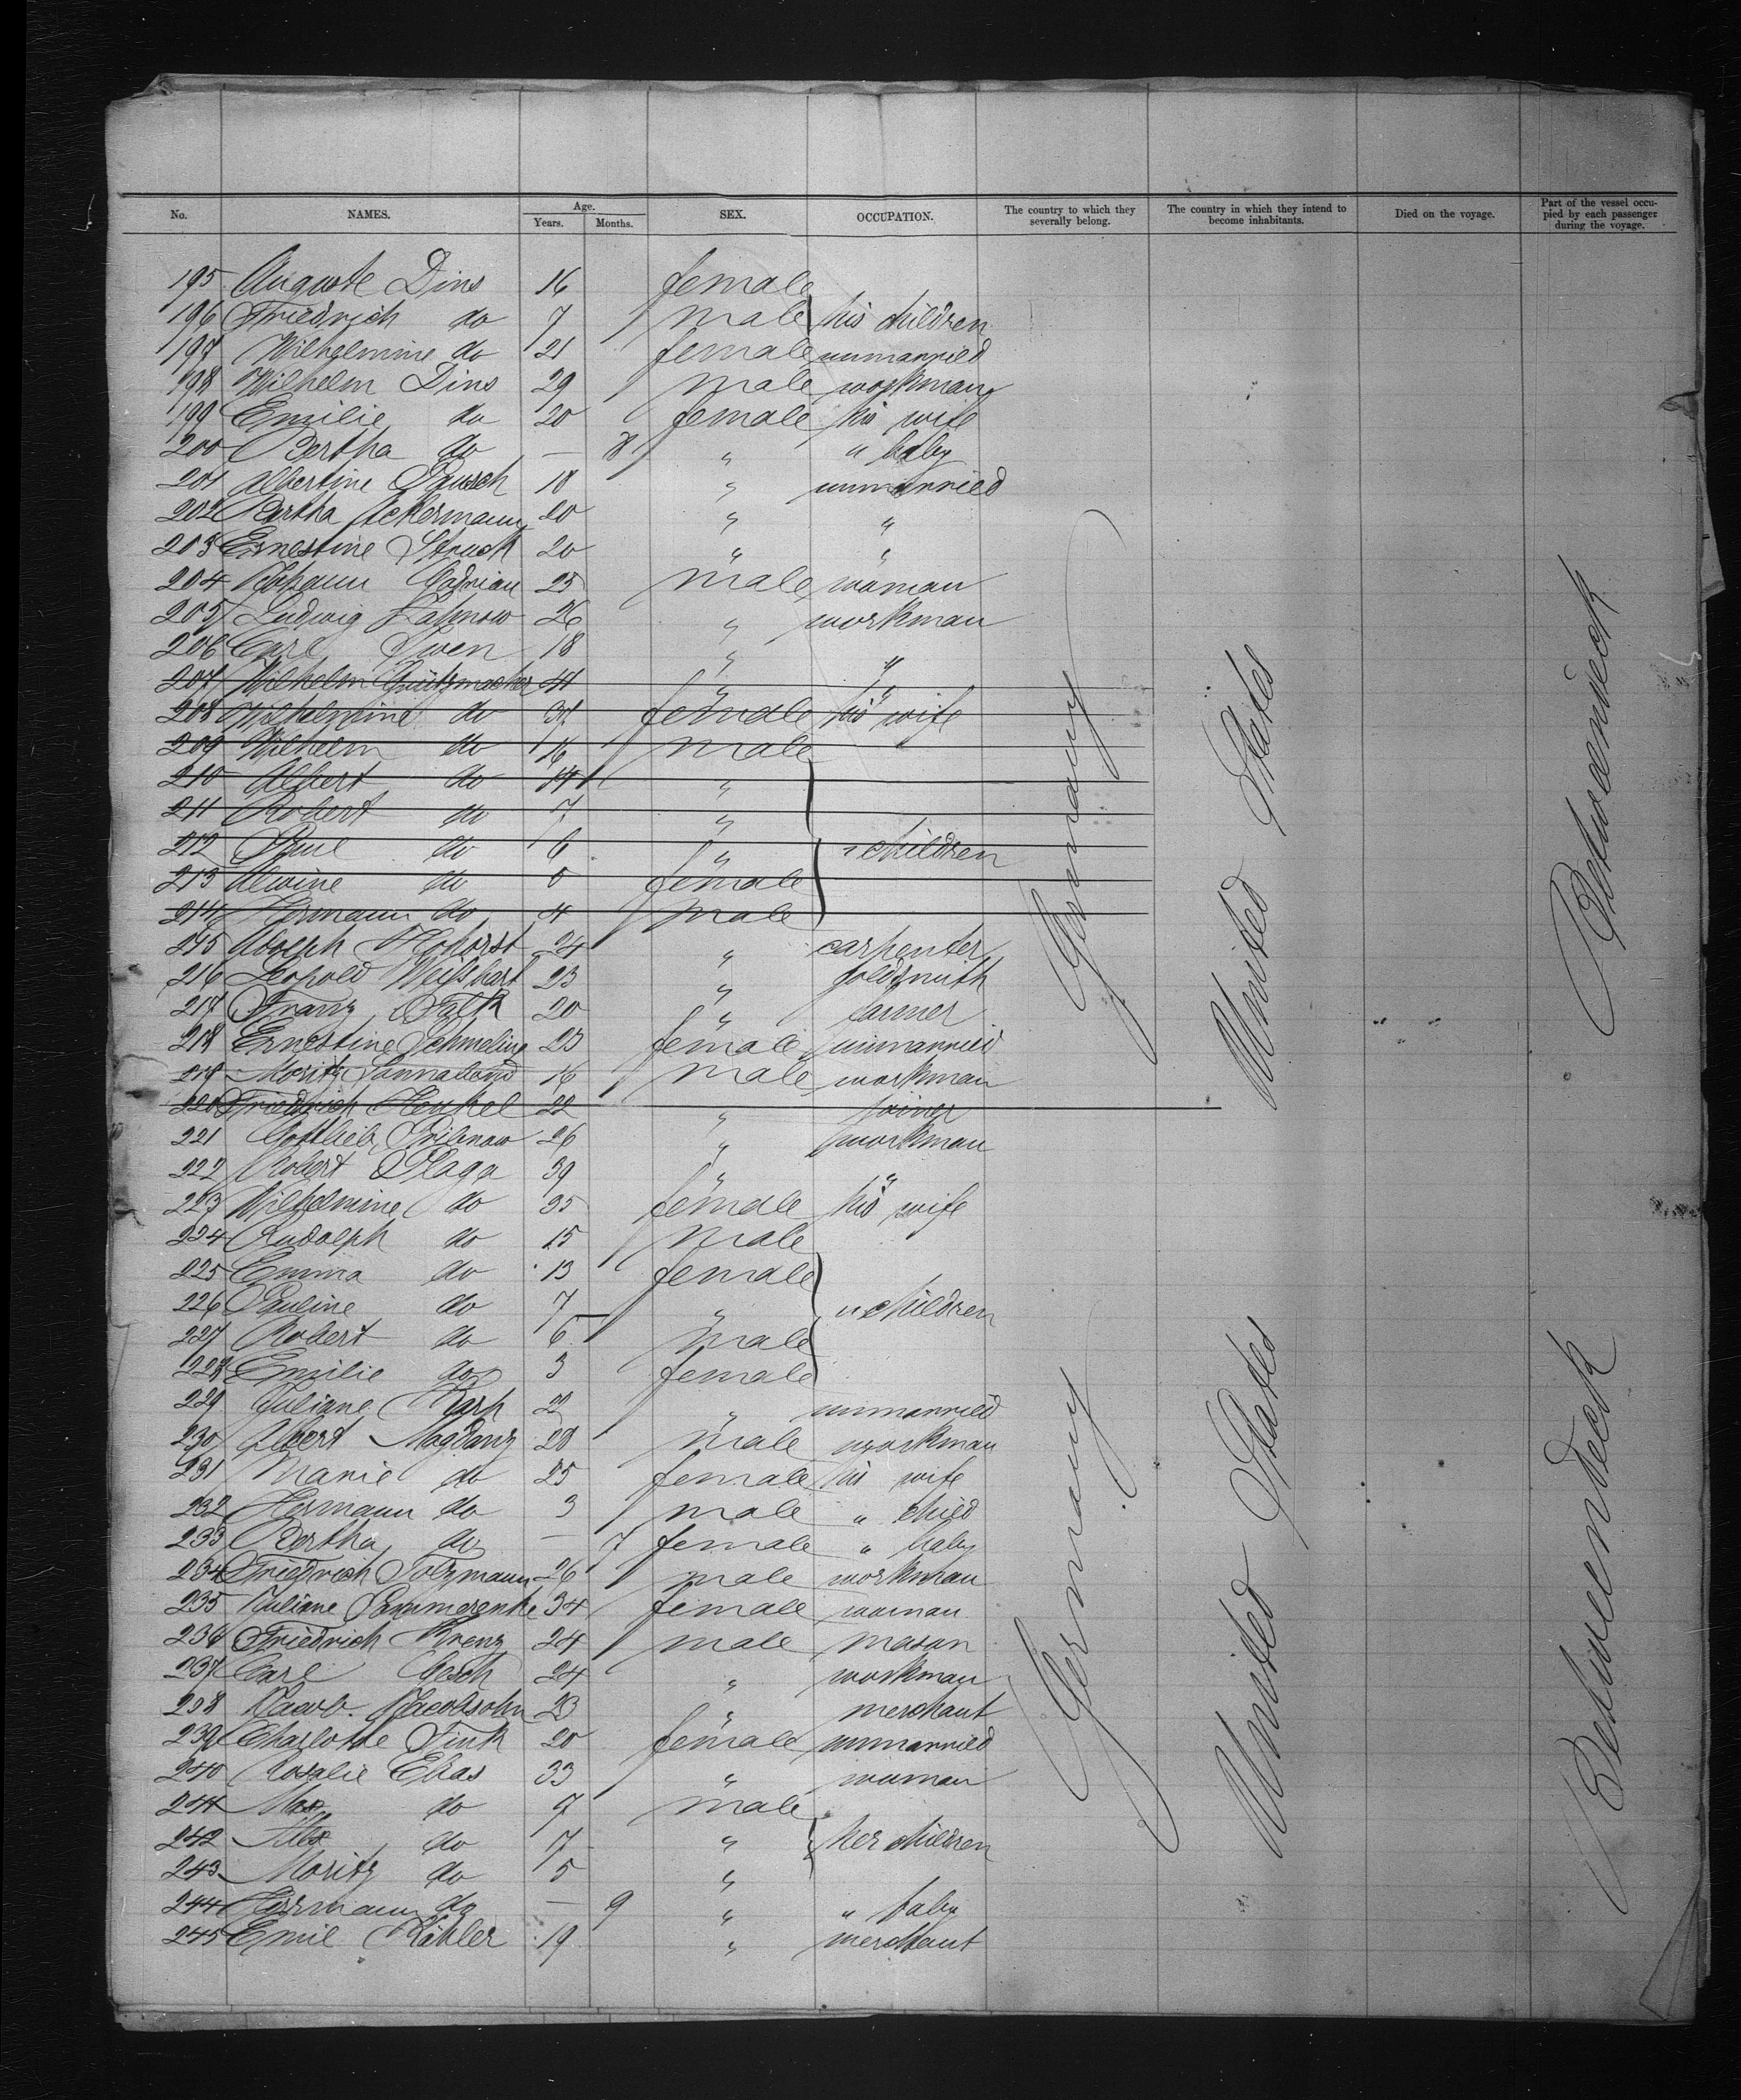 No. NAMES. Age. Years. Months. SEX. OCCUPATION. The country to which they severally belong. The country in which they intend to become inhabitants. Died on the voyage. Part of the vessel occupied by each passenger during the voyage.
195 Auguste Dins 16 female
196 Friedrich do 7 male his children
197 Wilhelmine do 21 female unmarried
198 Wilhelm Dins 29 male workman
199 Emilie do 20 female his wife
200 Bertha do — 8 " " baby
201 Albertine Pausch 18 " unmarried
202 Bertha Ackermann 20 " "
203 Ernestine Struck 20 " "
204 Johann Adrian 25 male woman
205 Ludwig 26 " workman
206 Carl Swen 18 " "
207 Wilhelm Gützmacher 41 " "
208 Wilhelmine do 37 female his wife
209 Wilhelm do 16 male
210 Albert do 14 "
211 Robert do 7 "
212 Paul do 6 " " children
213 Alwine do 5 female
214 Hermann do 4 male
215 Adolph Hohorst 24 " carpenter
216 Leopold 23 " goldsmith
217 Franz Falk 20 " farmer
218 Ernestine Schmeling 23 female unmarried
219 Moritz 16 male workman
220 Friedrich Henkel 22 " joiner
221 Gottlieb Pribnow 26 " workman
222 Robert Plaga 39 " "
223 Wilhelmine do 35 female his wife
224 Rudolph do 15 male
225 Emma do 13 female
226 Pauline do 7 " " children
227 Robert do 6 male
228 Emilie do 3 female
229 Juliane 22 " unmarried
230 Albert Magdanz 28 male workman
231 Marie do 25 female his wife
232 Hermann do 3 male " child
233 Bertha do — 7 female " baby
234 Friedrich Tolzmann 26 male workman
235 Juliane Pommerenke 34 female woman
236 Friedrich Krenz 24 male mason
237 Carl Gesch 24 " workman
238 Jacob Jacobsohn 23 " merchant
239 Charlotte Fink 20 female unmarried
240 Rosalie Elias 33 " woman
241 Max do 9 male
242 Alex do 7 " her children
243 Moritz do 5 "
244 Herrmann do — 9 " " baby
245 Emil Köhler 19 " merchant
Germany
United States
Betweendeck
Germany
United States
Betweendeck